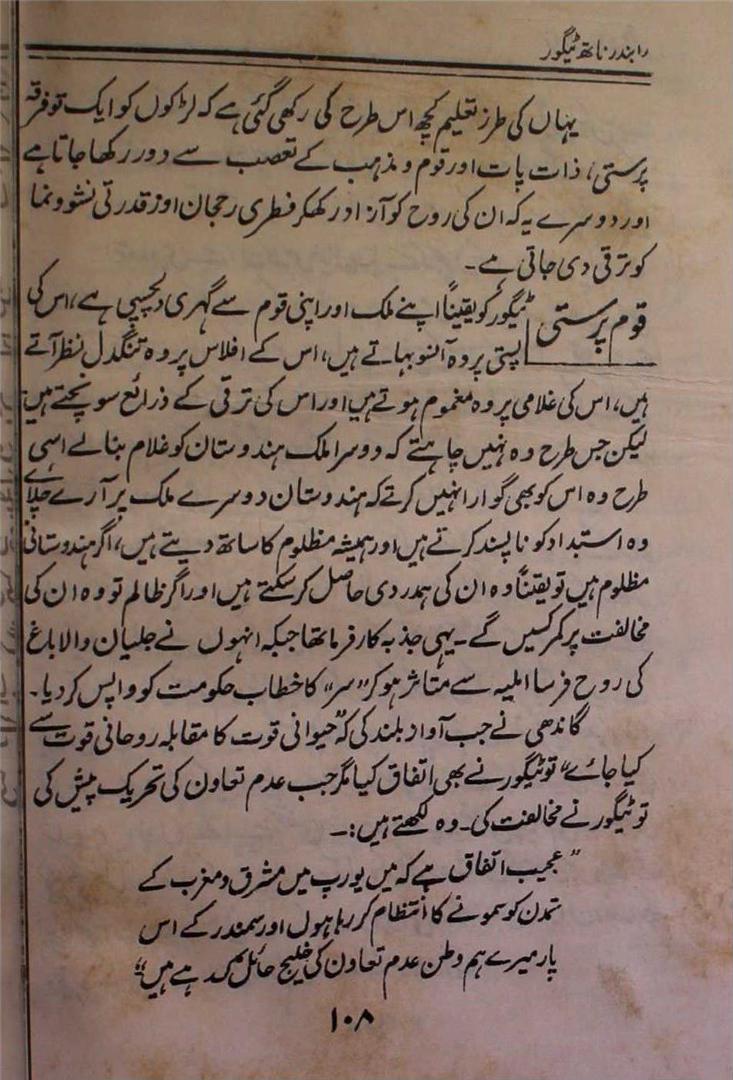 رابندر ناتھ ٹیگور
یہاں کی طرز تعلیم کچھ اس طرح کی رکھی گئی ہے کہ لڑکوں کو ایک تو فرقہ
پرستی، ذات پات اور قوم و مذہب کے تعصب سے دور رکھا جاتا ہے
اور دوسرے یہ کہ ان کی روح کو آزاد رکھکر فطری رحجان اور قدرتی نشوونما
کو ترقی دی جاتی ہے۔
قوم پرستی
ٹیگور کو یقیناً اپنے ملک اور اپنی قوم سے گہری دلچسپی ہے، اس کی
پستی پر وہ آنسو بہاتے ہیں، اس کے افلاس پر وہ تنگدل نظر آتے
ہیں، اس کی غلامی پر وہ مغموم ہوتے ہیں اور اس کی ترقی کے ذرائع سوچتے ہیں
لیکن جس طرح وہ نہیں چاہتے کہ دوسرا ملک ہندوستان کو غلام بنالے اسی
طرح وہ اس کو بھی گوارا نہیں کرتے کہ ہندوستان دوسرے ملک پر آرے چلائے
وہ استبداد کو ناپسند کرتے ہیں اور ہمیشہ مظلوم کا ساتھ دیتے ہیں، اگر ہندوستانی
مظلوم ہیں تو یقیناً وہ ان کی ہمدردی حاصل کرسکتے ہیں اور اگر ظالم تو وہ ان کی
مخالفت پر کمر کسیں گے۔ یہی جذبہ کارفرما تھا جبکہ انہوں نے جلیان والا باغ
کی روح فرسا المیہ سے متاثر ہوکر "سر" کا خطاب حکومت کو واپس کر دیا۔
گاندھی نے جب آواز بلند کی کہ "حیوانی قوت کا مقابلہ روحانی قوت سے
کیا جائے" تو ٹیگور نے بھی اتفاق کیا مگر جب عدم تعاون کی تحریک پیش کی
تو ٹیگور نے مخالفت کی۔ وہ لکھتے ہیں:۔
"عجیب اتفاق ہے کہ میں یورپ میں مشرق و مغرب کے
تمدن کو سمونے کا انتظام کر رہا ہوں اور سمندر کے اس
پار میرے ہم وطن عدم تعاون کی خلیج حائل کر رہے ہیں"
۱۰۸